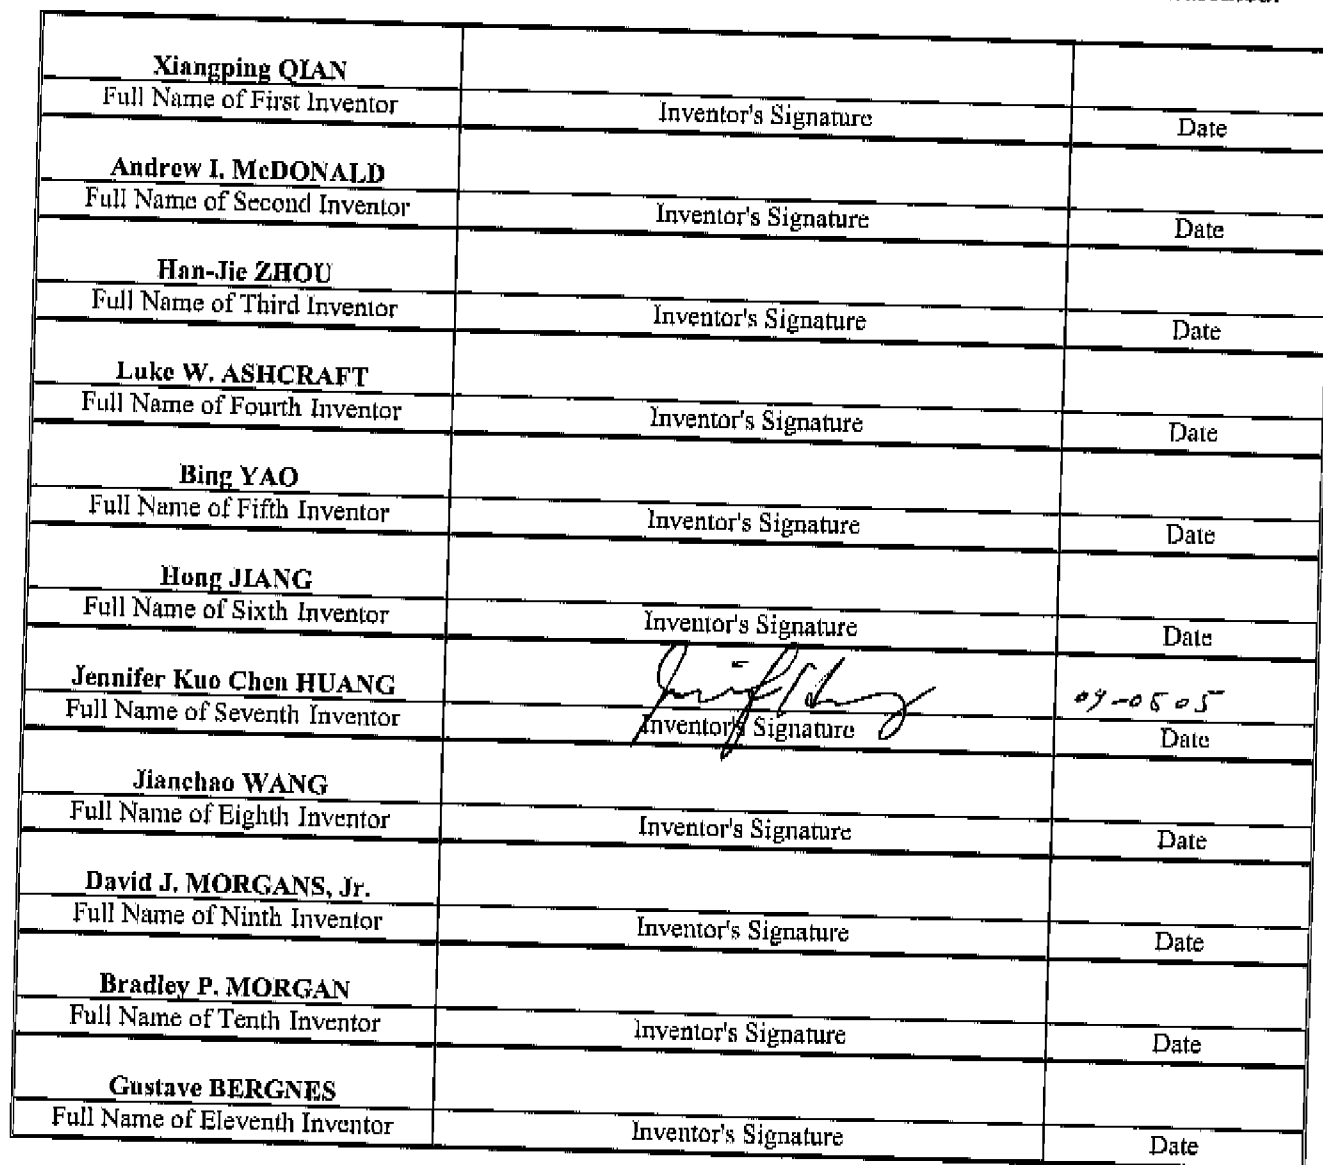 Xiangping QIAN
Full Name of First Inventor Inventor's Signature Date
Andrew I. McDONALD
Full Name of Second Inventor Inventor's Signature Date
Han-Jie ZHOU
Full Name of Third Inventor Inventor's Signature Date
Luke W. ASHCRAFT
Full Name of Fourth Inventor Inventor's Signature Date
Bing YAO
Full Name of Fifth Inventor Inventor's Signature Date
Hong JIANG
Full Name of Sixth Inventor Inventor's Signature Date
Jennifer Kuo Chen HUANG
Full Name of Seventh Inventor Inventor's Signature Date
Jianchao WANG
Full Name of Eighth Inventor Inventor's Signature Date
David J. MORGANS, Jr.
Full Name of Ninth Inventor Inventor's Signature Date
Bradley P. MORGAN
Full Name of Tenth Inventor Inventor's Signature Date
Gustave BERGNES
Full Name of Eleventh Inventor Inventor's Signature Date